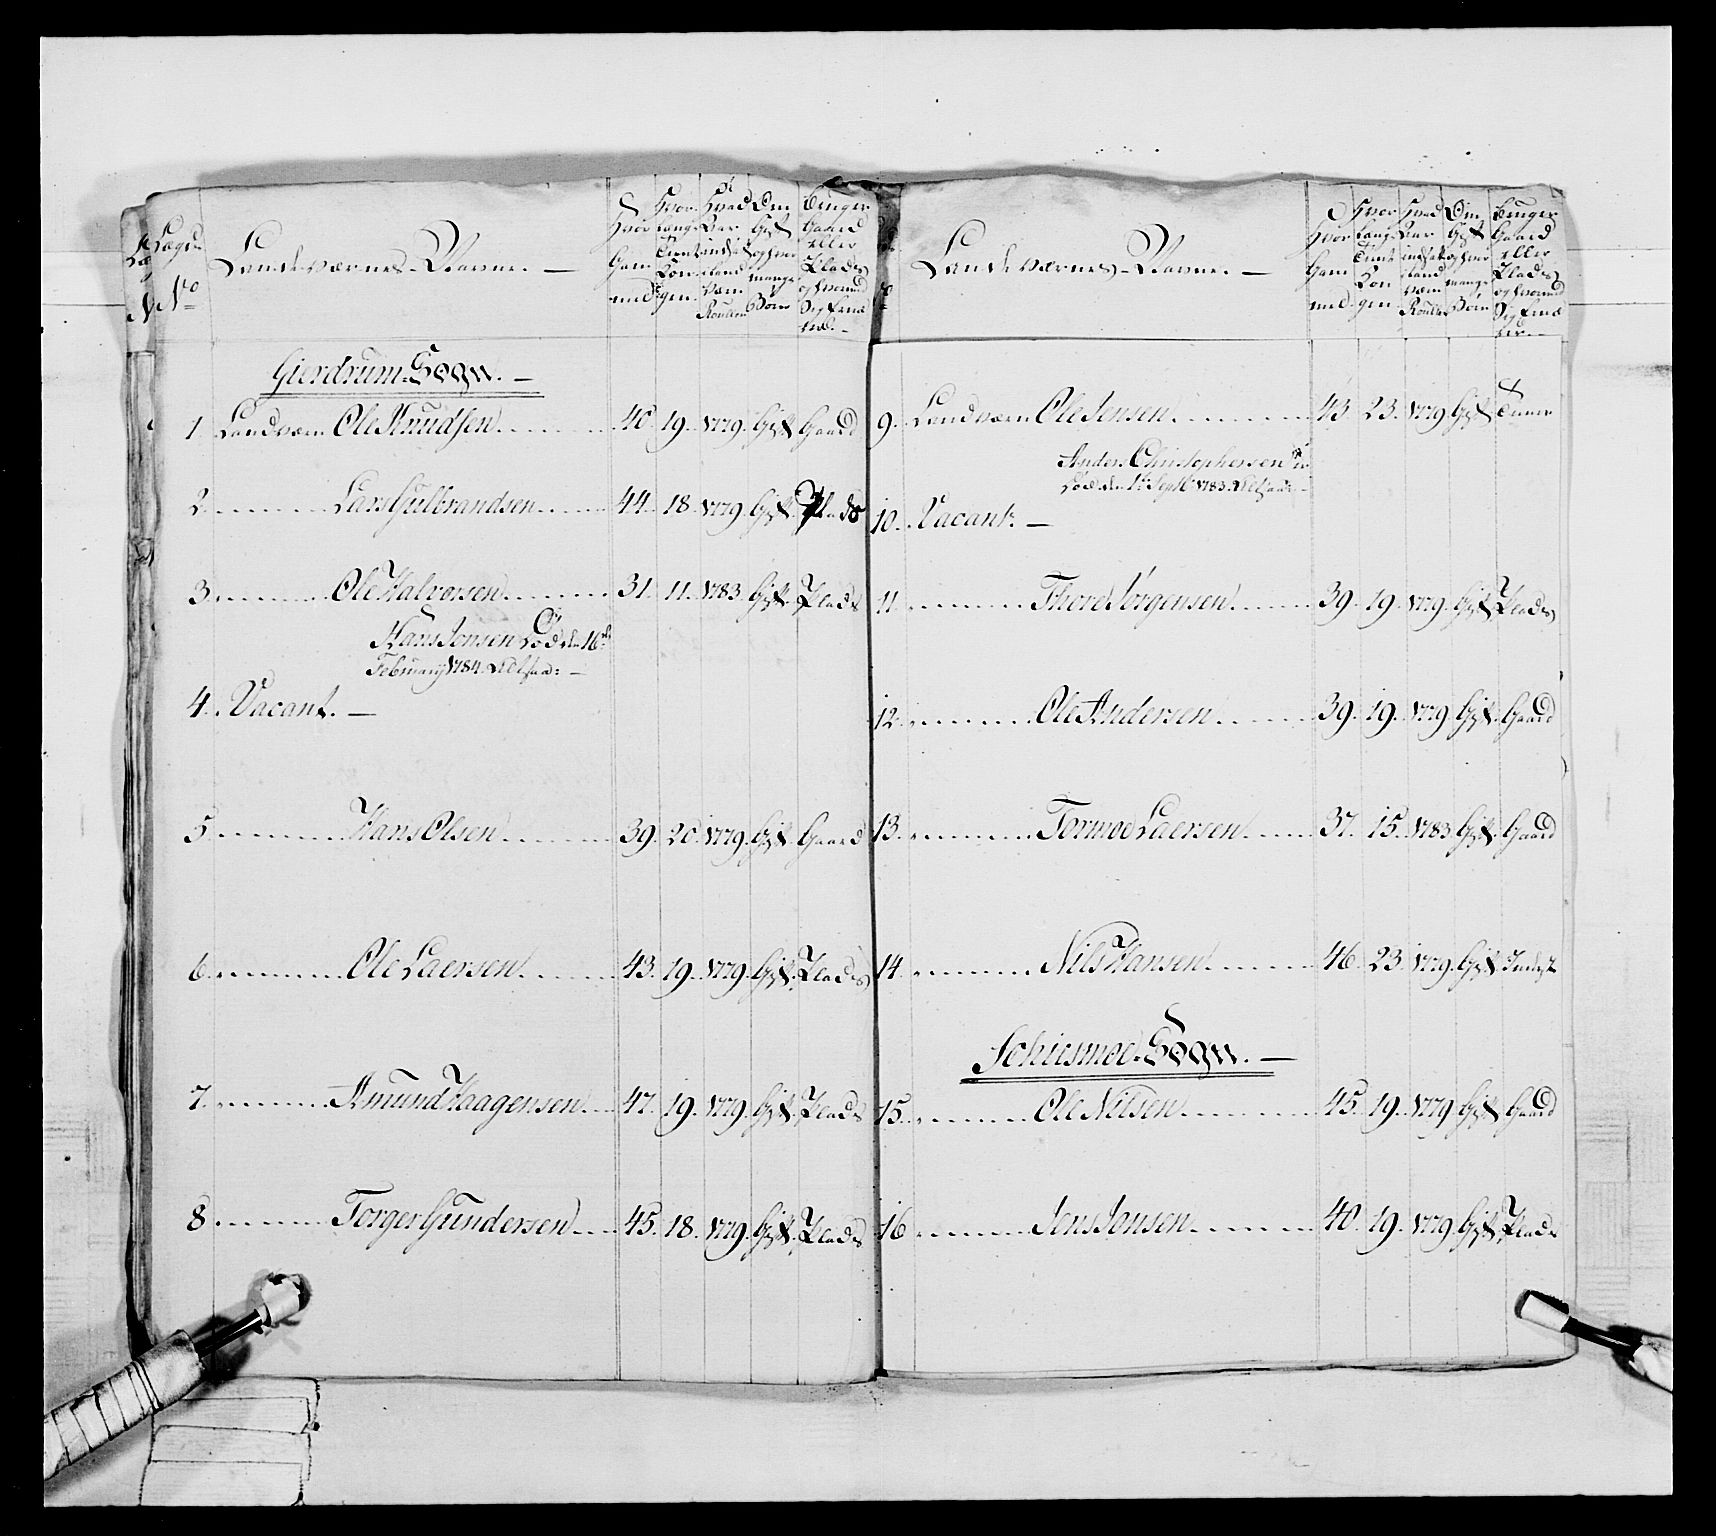 Lægds No
Landeværnes-Navne. —
Hvor Gammel
Hvor lange Tient Kongen
Hvad Aar indsat Land Værn Roullen
Om Gift og hvor mange Børn
Bruger Gaard eller Pladds og hvormed Sig Ernærer. —
Gierdrum Sogn. —
1. Landværn Ole Knudsen 40. 19. 1779. Gift Gaard
2. Lars Gulbrandsen 44. 18. 1779. Gift. Plads
3. Ole Halvorsen 31. 11. 1783. Gift. Plads
Hans Jonsen Død den 16de
Februarij 1784.
4. Vacant. —
5. Hans Olsen 39. 20. 1779. Gift. Gaard
6. Ole Laersen 43. 19. 1779. Gift. Plads
7. Amund Haagensen 47. 19. 1779. Gift. Plads
8. Torger Gundersen 45. 18. 1779. Gift. Plads
Landeværnes-Navne. —
Hvor Gammel
Hvor lange Tient Kongen
Hvad Aar indsat Land Værn Roullen
Om Gift og hvor mange Børn
Bruger Gaard eller Plads og hvormed Sig Ernærer. —
9. Landværn Ole Jensen 43. 23. 1779 Gift
Anders Christophersen er
Død den 1te Septb 1783.
10. Vacant. —
11. Thore Jørgensen 39. 19. 1779. Gift Plads
12. Ole Andersen 39. 19. 1779 Gift. Gaard
13. Tormod Laersen 37. 15. 1783 Gift. Gaard
14. Nils Hansen 46. 23. 1779. Gift Inderst
Schiesmoe Sogn. —
15. Ole Nilsen 45. 19. 1779 Gift Gaard
16. Jens Jonsen 40. 19. 1779 Gift Plads